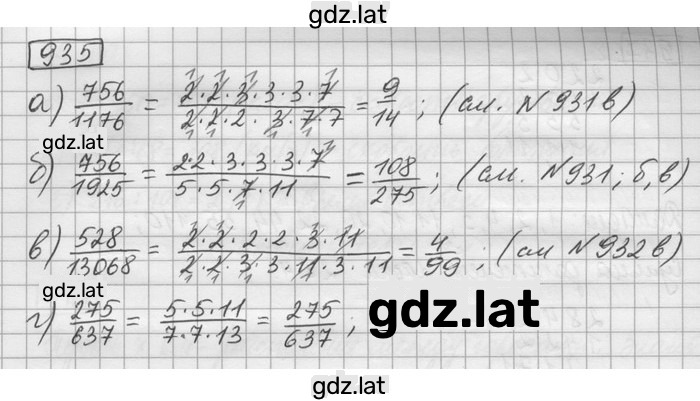 gdz.lat
935
а) 756/1176 = 2·2·3·3·3·7/2·2·2·3·7·7 = 9/14 ; (см. N 931в)
gdz.lat
б) 756/1925 = 2·2·3·3·3·7/5·5·7·11 = 108/275 ; (см. N931; б,в)
gdz.lat
в) 528/13068 = 2·2·2·2·3·11/2·2·3·3·11·3·11 = 4/99 ; (см N 932в)
gdz.lat
г) 275/637 = 5·5·11/7·7·13 = 275/637 ;
gdz.lat
gdz.lat
gdz.lat